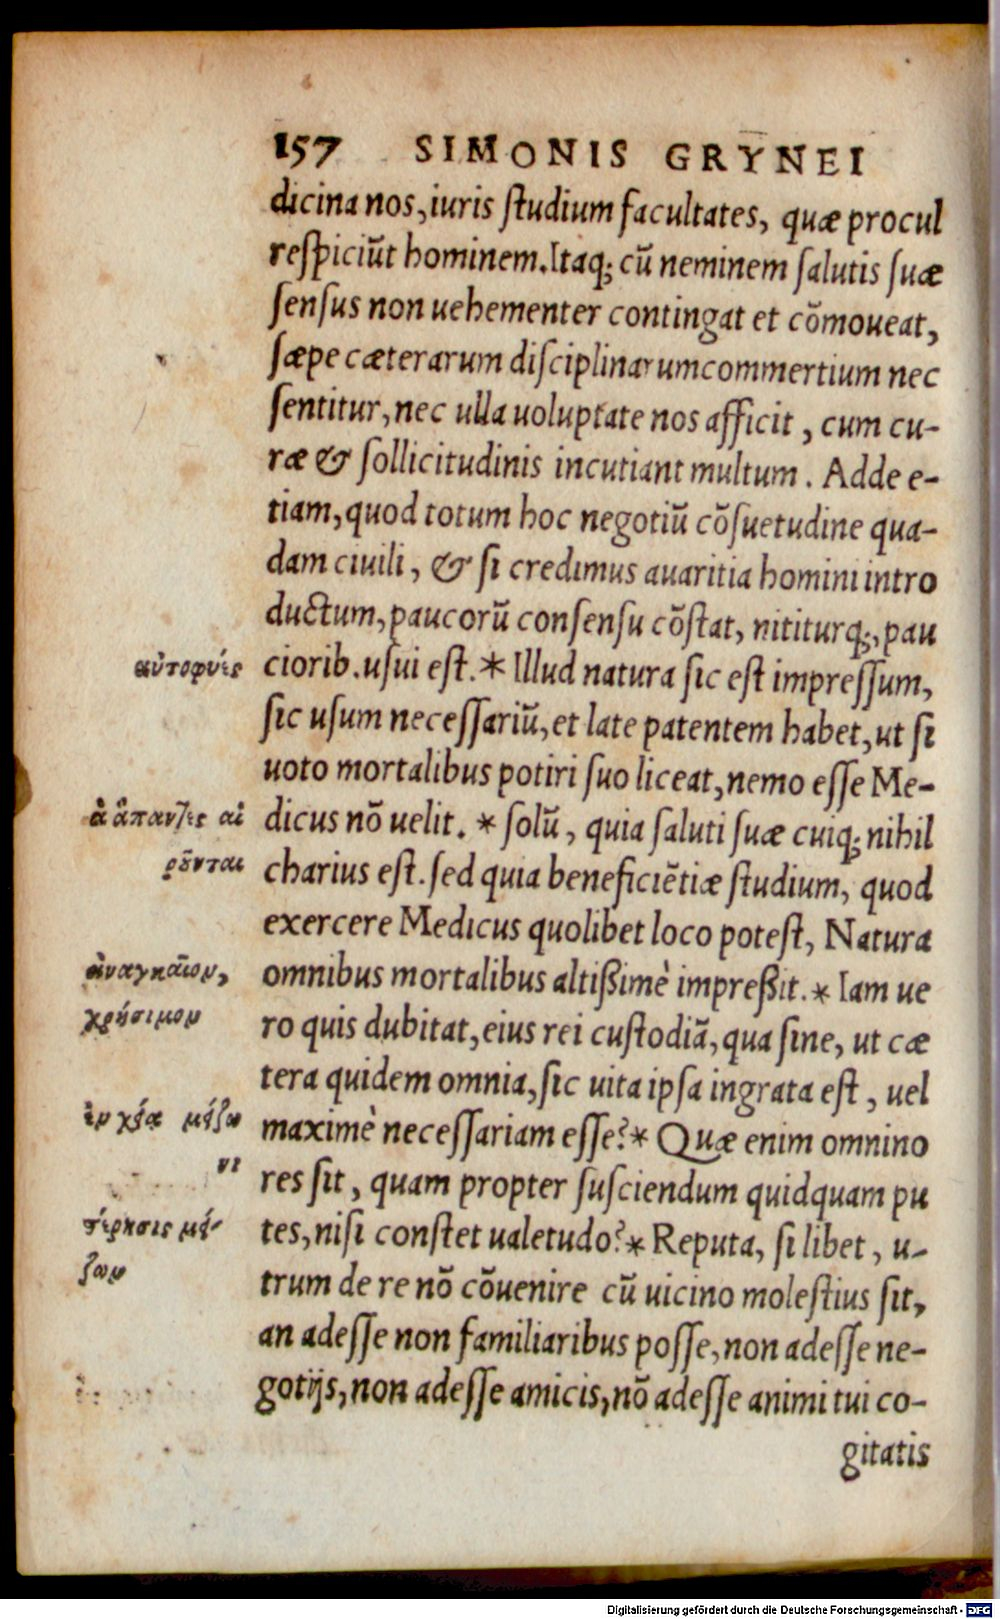 157 SIMONIS GRYNEI
dicina nos, iuris ſtudium facultates, quæ procul
reſpiciũt hominem. Itaq; cũ neminem ſalutis ſuæ
ſenſus non uehementer contingat et cõmoueat,
ſæpe cæterarum diſciplinarumcommertium nec
ſentitur, nec ulla uoluptate nos afficit, cum cu-
ræ & ſollicitudinis incutiant multum. Adde e-
tiam, quod totum hoc negotiũ cõſuetudine qua-
dam ciuili, & ſi credimus auaritia homini intro
ductum, paucorũ conſenſu cõſtat, nititurq;, pau
αὐτοφυές
ciorib. uſui eſt. * Illud natura ſic eſt impreſſum,
ſic uſum neceſſariũ, et late patentem habet, ut ſi
uoto mortalibus potiri ſuo liceat, nemo eſſe Me-
ἃ ἅπαντες αἱ
dicus nõ uelit. * ſolũ, quia ſaluti ſuæ cuiq; nihil
ροῦνται
charius eſt. ſed quia beneficiẽtiæ ſtudium, quod
exercere Medicus quolibet loco poteſt, Natura
ἀναγκαῖον,
omnibus mortalibus altißimè impreßit. * Iam ue
χρήσιμον
ro quis dubitat, eius rei cuſtodiã, qua ſine, ut cæ
tera quidem omnia, ſic uita ipſa ingrata eſt, uel
μείζο
maximè neceſſariam eſſe? * Quæ enim omnino
νι
res ſit, quam propter ſuſciendum quidquam pu
μεί-
tes, niſi conſtet ualetudo? * Reputa, ſi libet, u-
ζων
trum de re nõ cõuenire cũ uicino moleſtius ſit,
an adeſſe non familiaribus poſſe, non adeſſe ne-
gotijs, non adeſſe amicis, nõ adeſſe animi tui co-
gitatis
Digitalisierung gefördert durch die Deutsche Forschungsgemeinschaft - DFG